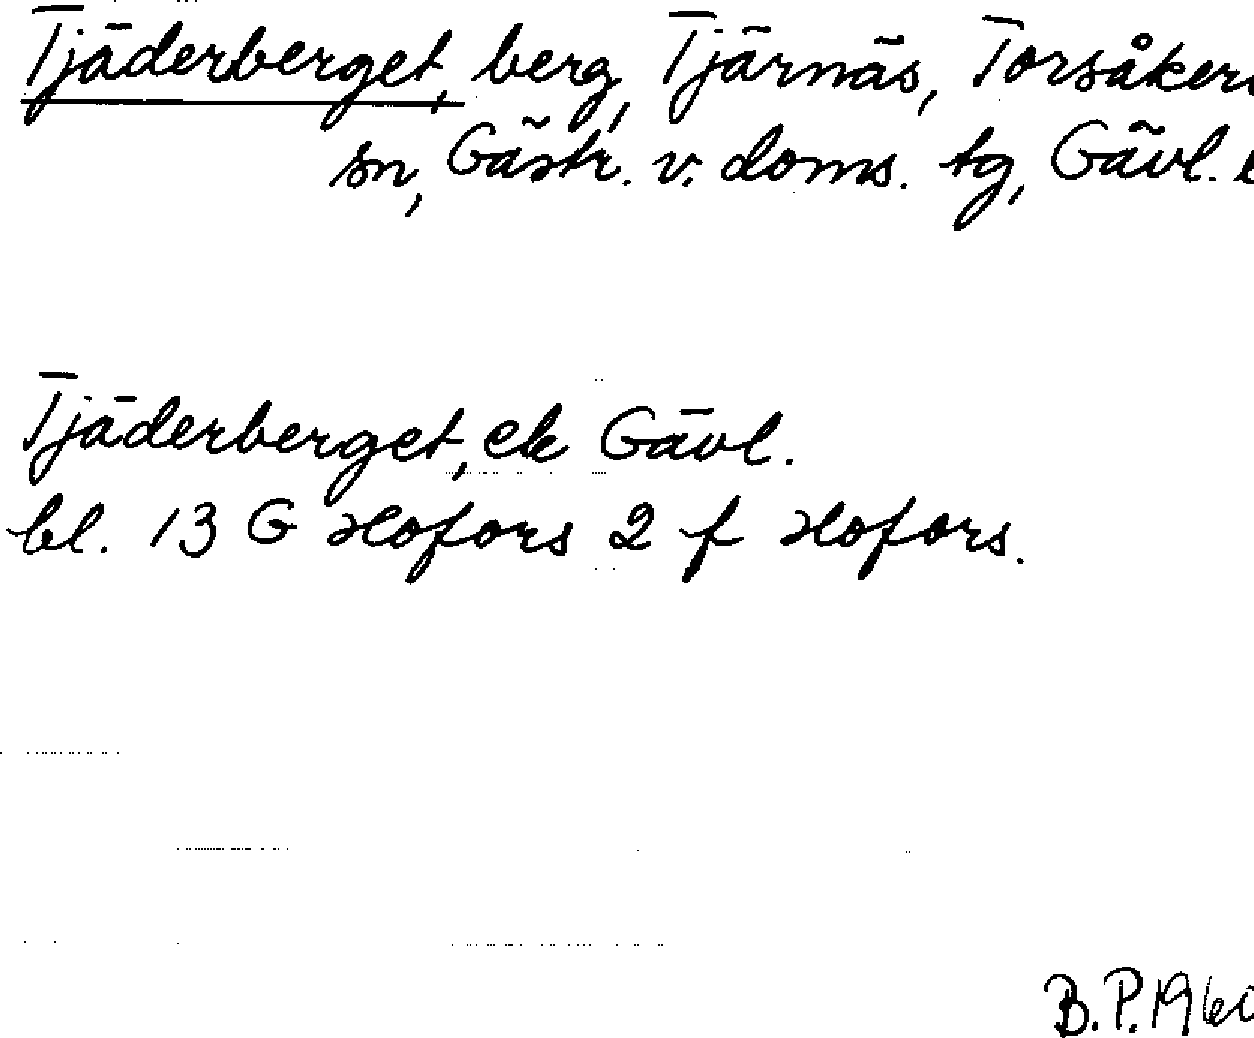 Tjäderberget, berg, Tjärnäs, Torsåkers
sn, Gästr. v. doms. tg, Gävl.
Tjäderberget, ek Gävl.
bl. 13 G Hofors 2 f Hofors.
B.P. 1960